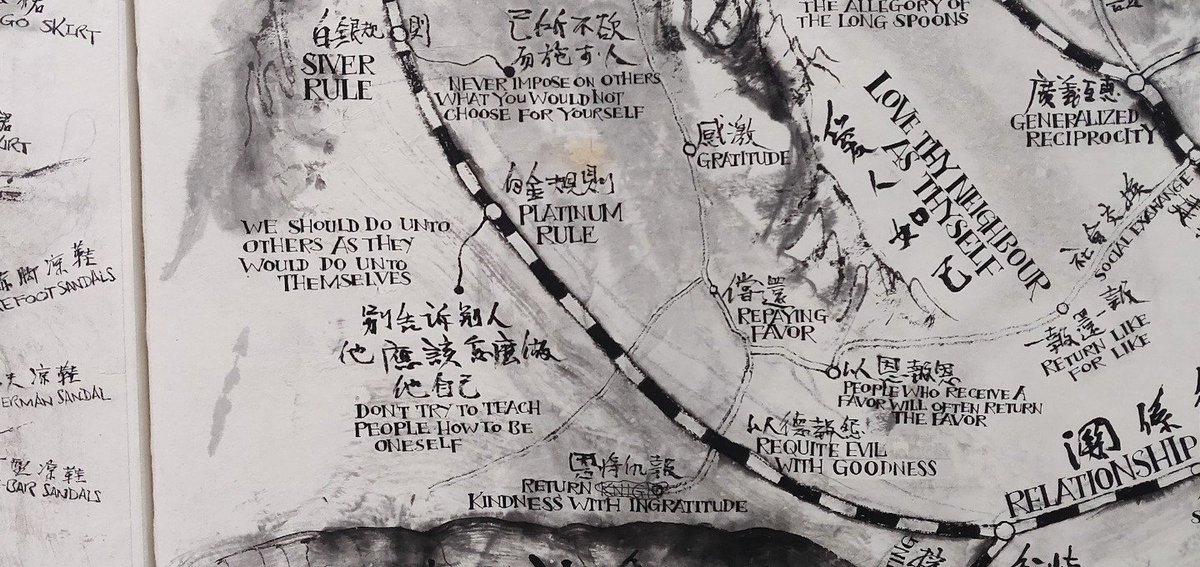 GO SKIRT
涼鞋
涼鞋
涼鞋
-BAR SANDALS
白銀規則
SIVER
RULE
己所不欲
勿施於人
NEVER IMPOSE ON OTHERS
WHAT YOU WOULD NOT
CHOOSE FOR YOURSELF
感激
GRATITUDE
白金規則
PLATINUM
RULE
WE SHOULD DO UNTO
OTHERS AS THEY
WOULD DO UNTO
THEMSELVES
別告訴別人
他應該怎麼做
他自己
DON'T TRY TO TEACH
PEOPLE HOW TO BE
ONESELF
償還
REPAYING
FAVOR
以恩報恩
PEOPLE WHO RECEIVE A
FAVOR WILL OFTEN RETURN
THE FAVOR
以德報怨
REQUITE EVIL
WITH GOODNESS
恩將仇報
RETURN
KINDNESS WITH INGRATITUDE
THE ALLEGORY OF
THE LONG SPOONS
LOVE THY NEIGHBOUR
AS THYSELF
愛人如己
廣義互惠
GENERALIZED
RECIPROCITY
社會交換
SOCIAL EXCHANGE
一報還一報
RETURN LIKE
FOR LIKE
關係
RELATIONSHIP